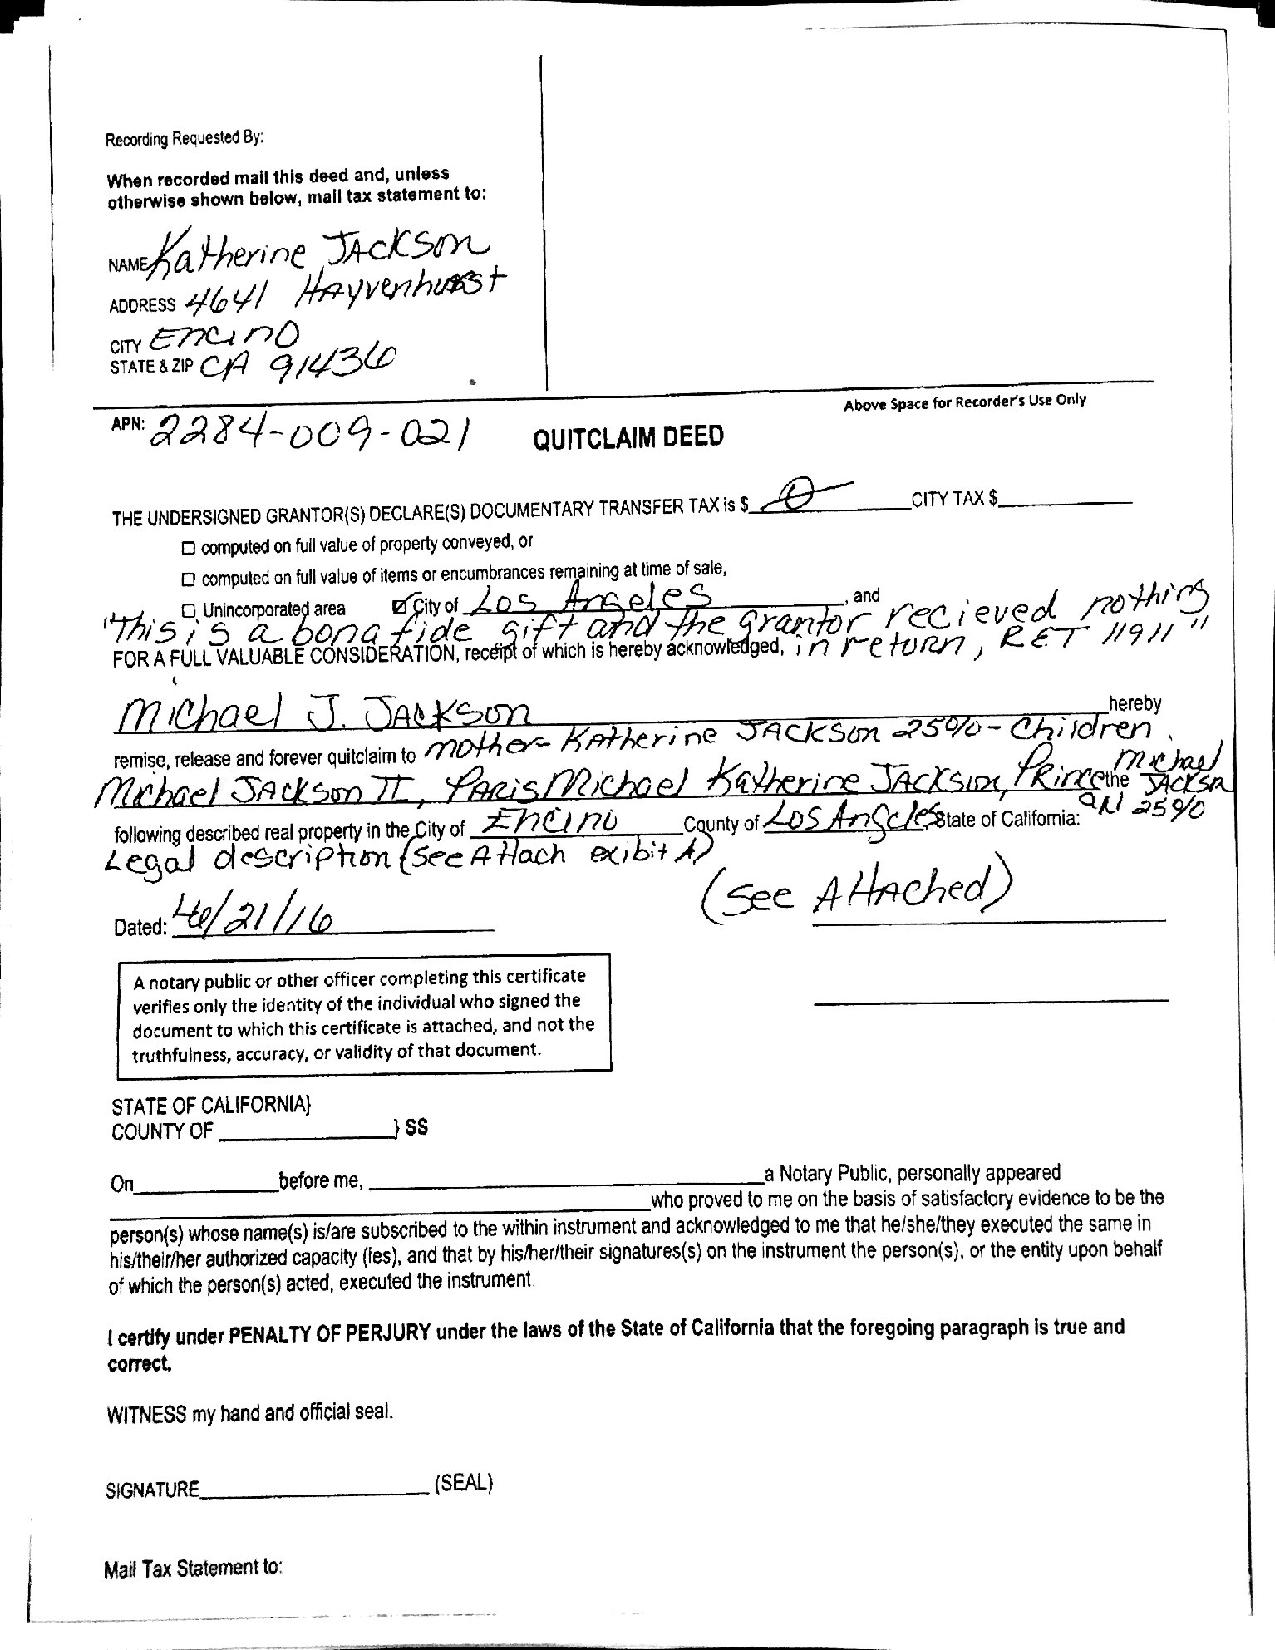 Recording Requested By:
When recorded mail this deed and, unless
otherwise shown below, mail tax statement to:
NAME Katherine JAckson
ADDRESS 4641 HAyvenhurst
CITY Encino
STATE & ZIP CA 91436
Above Space for Recorder's Use Only
APN: 2284-009-021
QUITCLAIM DEED
THE UNDERSIGNED GRANTOR(S) DECLARE(S) DOCUMENTARY TRANSFER TAX is $ 0 CITY TAX $
computed on full value of property conveyed, or
computed on full value of items or encumbrances remaining at time of sale,
Unincorporated area City of Los Angeles, and
"This is a bona fide gift and the grantor recieved nothing
FOR A FULL VALUABLE CONSIDERATION, receipt of which is hereby acknowledged, in return, R&T 11911"
Michael J. JAckson hereby
remise, release and forever quitclaim to mother Katherine JACKSon 25% - Children
Michael JAckson II, PAris Michael Katherine JAckson, Prince Michael JAcksn
the
All 25%
following described real property in the City of Encino County of Los Angeles State of California:
Legal description (see Attach exibit A)
(see AttAched)
Dated: 4/21/16
A notary public or other officer completing this certificate
verifies only the identity of the individual who signed the
document to which this certificate is attached, and not the
truthfulness, accuracy, or validity of that document.
STATE OF CALIFORNIA}
COUNTY OF } SS
On before me, a Notary Public, personally appeared
who proved to me on the basis of satisfactory evidence to be the
person(s) whose name(s) is/are subscribed to the within instrument and acknowledged to me that he/she/they executed the same in
his/their/her authorized capacity (ies), and that by his/her/their signatures(s) on the instrument the person(s), or the entity upon behalf
of which the person(s) acted, executed the instrument.
I certify under PENALTY OF PERJURY under the laws of the State of California that the foregoing paragraph is true and
correct.
WITNESS my hand and official seal.
SIGNATURE (SEAL)
Mail Tax Statement to: